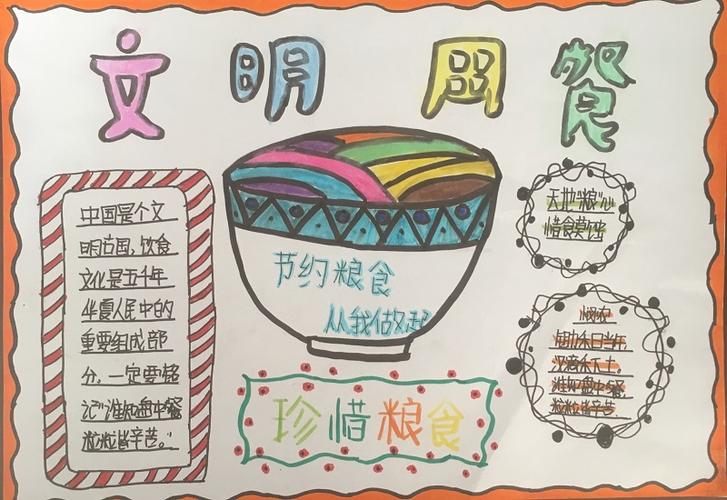 文明用餐
中国是个文
明古国,饮食
文化是五千年
华夏人民中的
重要组成部
分,一定要铭
记“谁知盘中餐
粒粒皆辛苦。”
节约粮食
从我做起
珍惜粮食
天地“粮”心
惜食莫蚀
悯农
锄禾日当午
汗滴禾下土。
谁知盘中餐
粒粒皆辛苦。